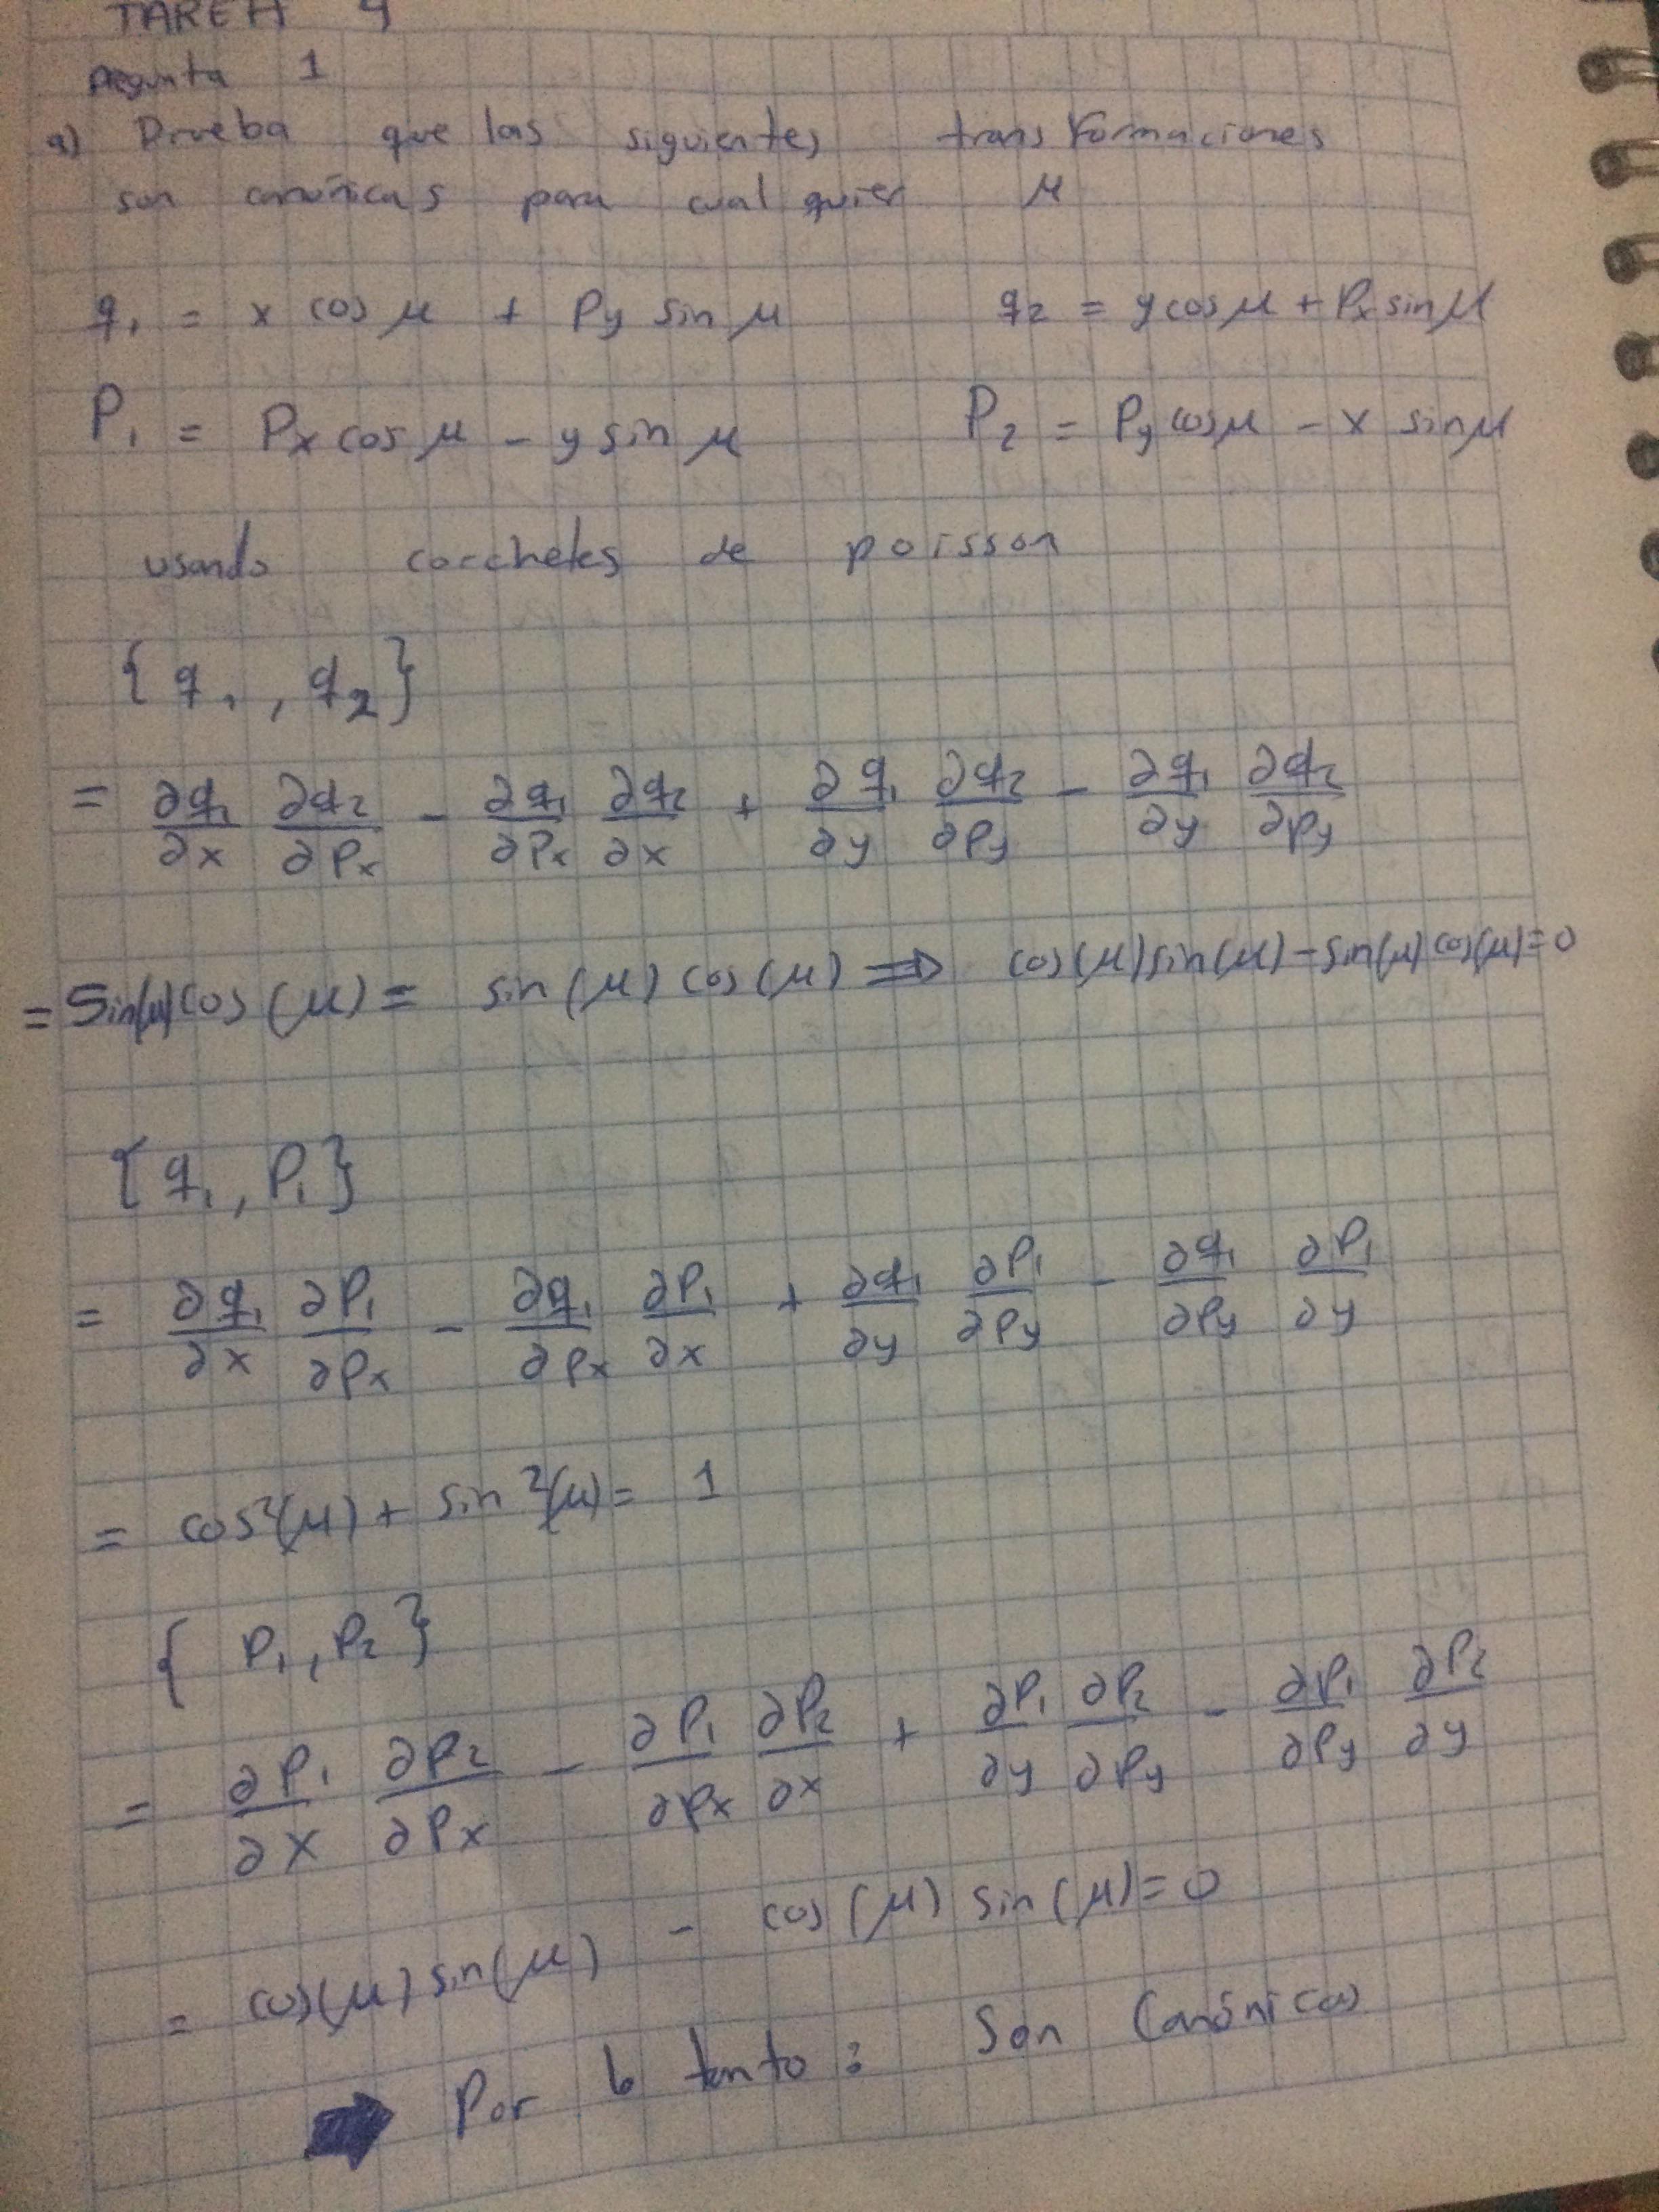 TAREA 4
Pregunta 1
a) Prueba que las siguientes transformaciones
son canónicas para cual quier μ
q₁ = x cos μ + Py sin μ q₂ = y cos μ + Px sin μ
P₁ = Px cos μ - y sin μ P₂ = Py cos μ - x sin μ
usando corchetes de poisson
{q₁, q₂}
= ∂q₁/∂x ∂q₂/∂Px - ∂q₁/∂Px ∂q₂/∂x + ∂q₁/∂y ∂q₂/∂Py - ∂q₁/∂y ∂q₂/∂Py
= Sin(μ) cos(μ) = sin(μ) cos(μ) ⇒ cos(μ) sin(μ) - sin(μ) cos(μ) = 0
{q₁, P₁}
= ∂q₁/∂x ∂P₁/∂Px - ∂q₁/∂Px ∂P₁/∂x + ∂q₁/∂y ∂P₁/∂Py - ∂q₁/∂Py ∂P₁/∂y
= cos²(μ) + sin²(μ) = 1
{P₁, P₂}
= ∂P₁/∂x ∂P₂/∂Px - ∂P₁/∂Px ∂P₂/∂x + ∂P₁/∂y ∂P₂/∂Py - ∂P₁/∂Py ∂P₂/∂y
= cos(μ) sin(μ) - cos(μ) sin(μ) = 0
Por lo tanto: Son Canónicas